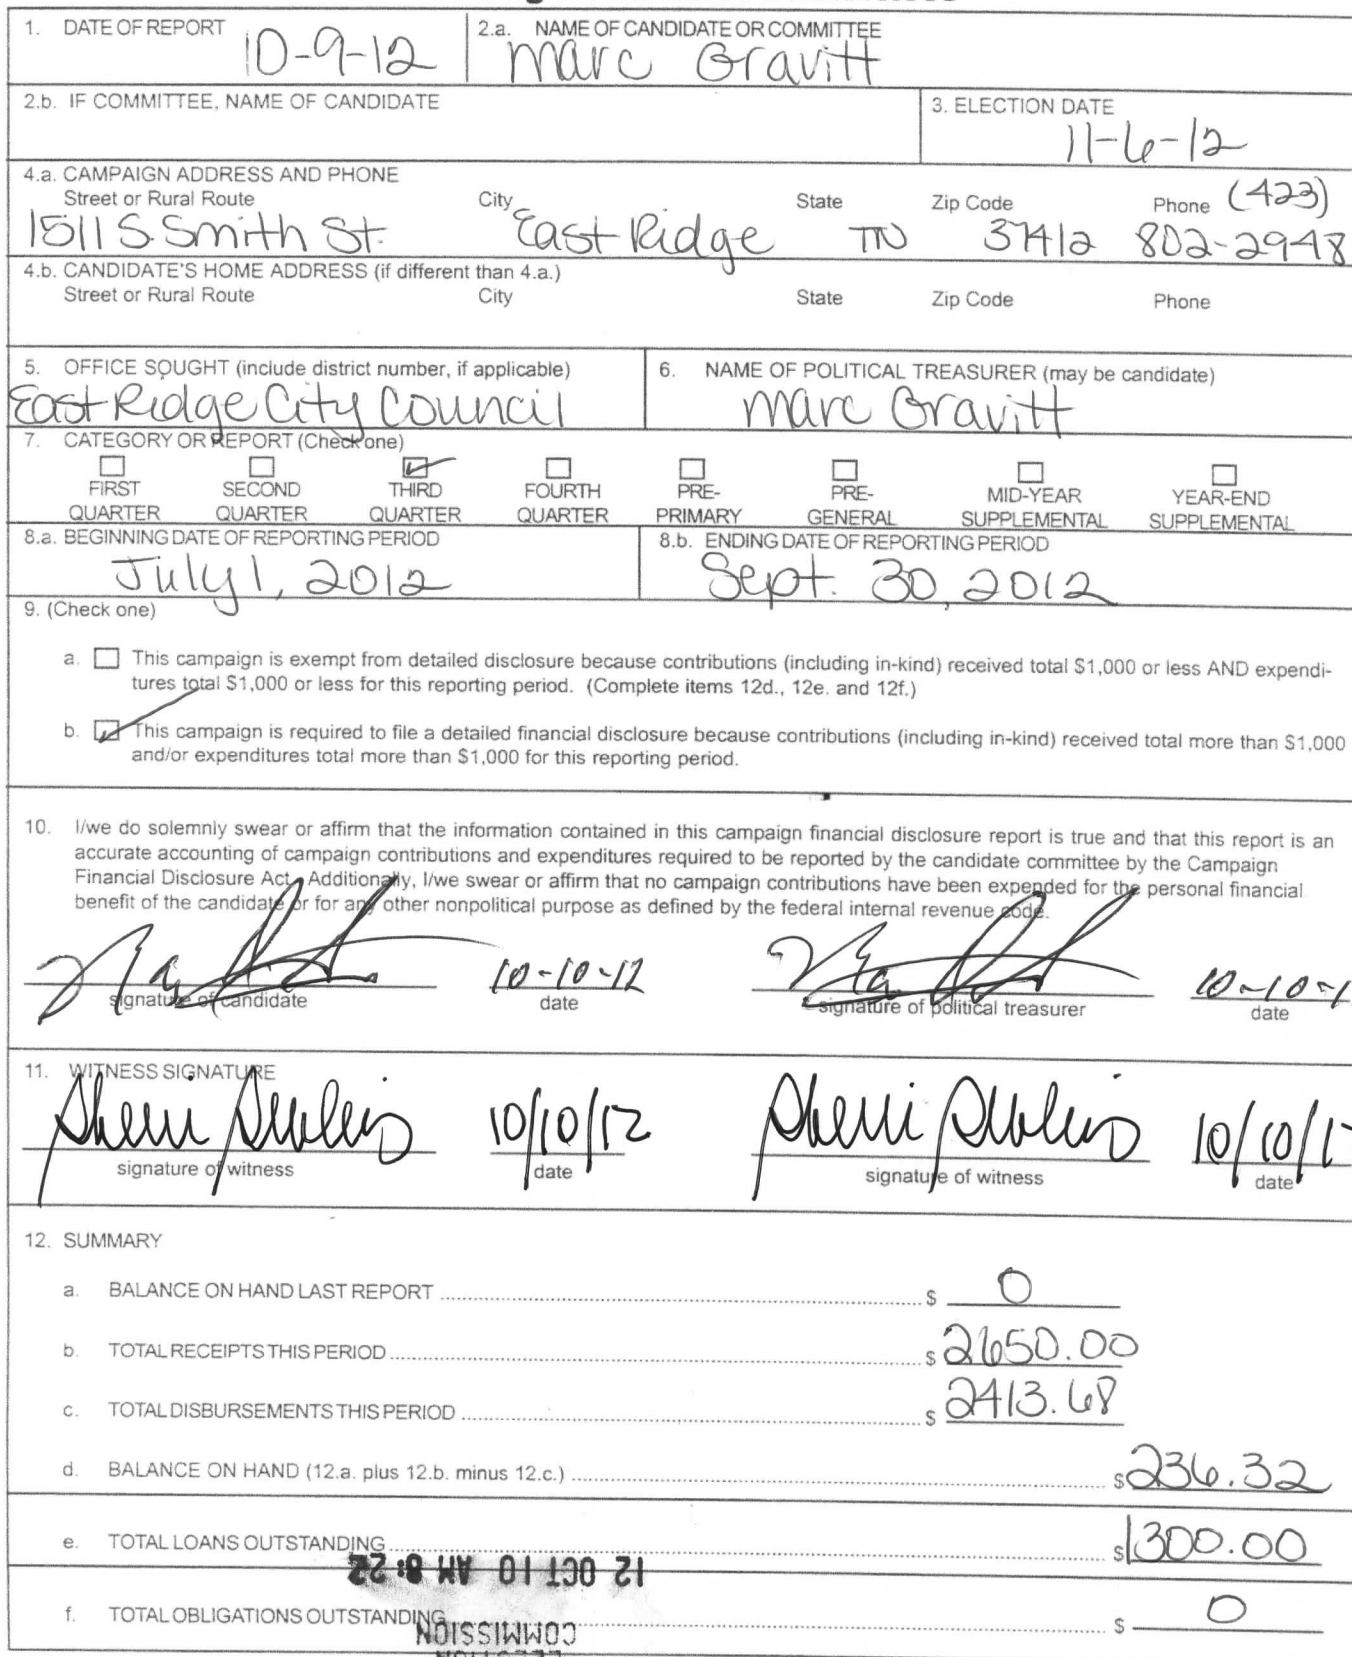 1. DATE OF REPORT 10-9-12 2.a. NAME OF CANDIDATE OR COMMITTEE Marc Gravitt
2.b. IF COMMITTEE, NAME OF CANDIDATE 3. ELECTION DATE
11-6-12
4.a. CAMPAIGN ADDRESS AND PHONE
Street or Rural Route City State Zip Code Phone (423)
1511 S. Smith St. East Ridge TN 37412 802-2948
4.b. CANDIDATE'S HOME ADDRESS (if different than 4.a.)
Street or Rural Route City State Zip Code Phone
5. OFFICE SOUGHT (include district number, if applicable) 6. NAME OF POLITICAL TREASURER (may be candidate)
East Ridge City Council Marc Gravitt
7. CATEGORY OR REPORT (Check one)
FIRST SECOND THIRD FOURTH PRE- PRE- MID-YEAR YEAR-END
QUARTER QUARTER QUARTER QUARTER PRIMARY GENERAL SUPPLEMENTAL SUPPLEMENTAL
8.a. BEGINNING DATE OF REPORTING PERIOD 8.b. ENDING DATE OF REPORTING PERIOD
July 1, 2012 Sept. 30, 2012
9. (Check one)
a. This campaign is exempt from detailed disclosure because contributions (including in-kind) received total $1,000 or less AND expendi-
tures total $1,000 or less for this reporting period. (Complete items 12d., 12e. and 12f.)
b. This campaign is required to file a detailed financial disclosure because contributions (including in-kind) received total more than $1,000
and/or expenditures total more than $1,000 for this reporting period.
10. I/we do solemnly swear or affirm that the information contained in this campaign financial disclosure report is true and that this report is an
accurate accounting of campaign contributions and expenditures required to be reported by the candidate committee by the Campaign
Financial Disclosure Act. Additionally, I/we swear or affirm that no campaign contributions have been expended for the personal financial
benefit of the candidate or for any other nonpolitical purpose as defined by the federal internal revenue code.
10-10-12 10-10-1
signature of candidate date signature of political treasurer date
11. WITNESS SIGNATURE
Sherri 10/10/12 Sherri 10/10/1
signature of witness date signature of witness date
12. SUMMARY
a. BALANCE ON HAND LAST REPORT $ 0
b. TOTAL RECEIPTS THIS PERIOD $ 2650.00
c. TOTAL DISBURSEMENTS THIS PERIOD $ 2413.68
d. BALANCE ON HAND (12.a. plus 12.b. minus 12.c.) $ 236.32
e. TOTAL LOANS OUTSTANDING $ 1300.00
12 OCT 10 AM 8:22
f. TOTAL OBLIGATIONS OUTSTANDING $ 0
COMMISSION